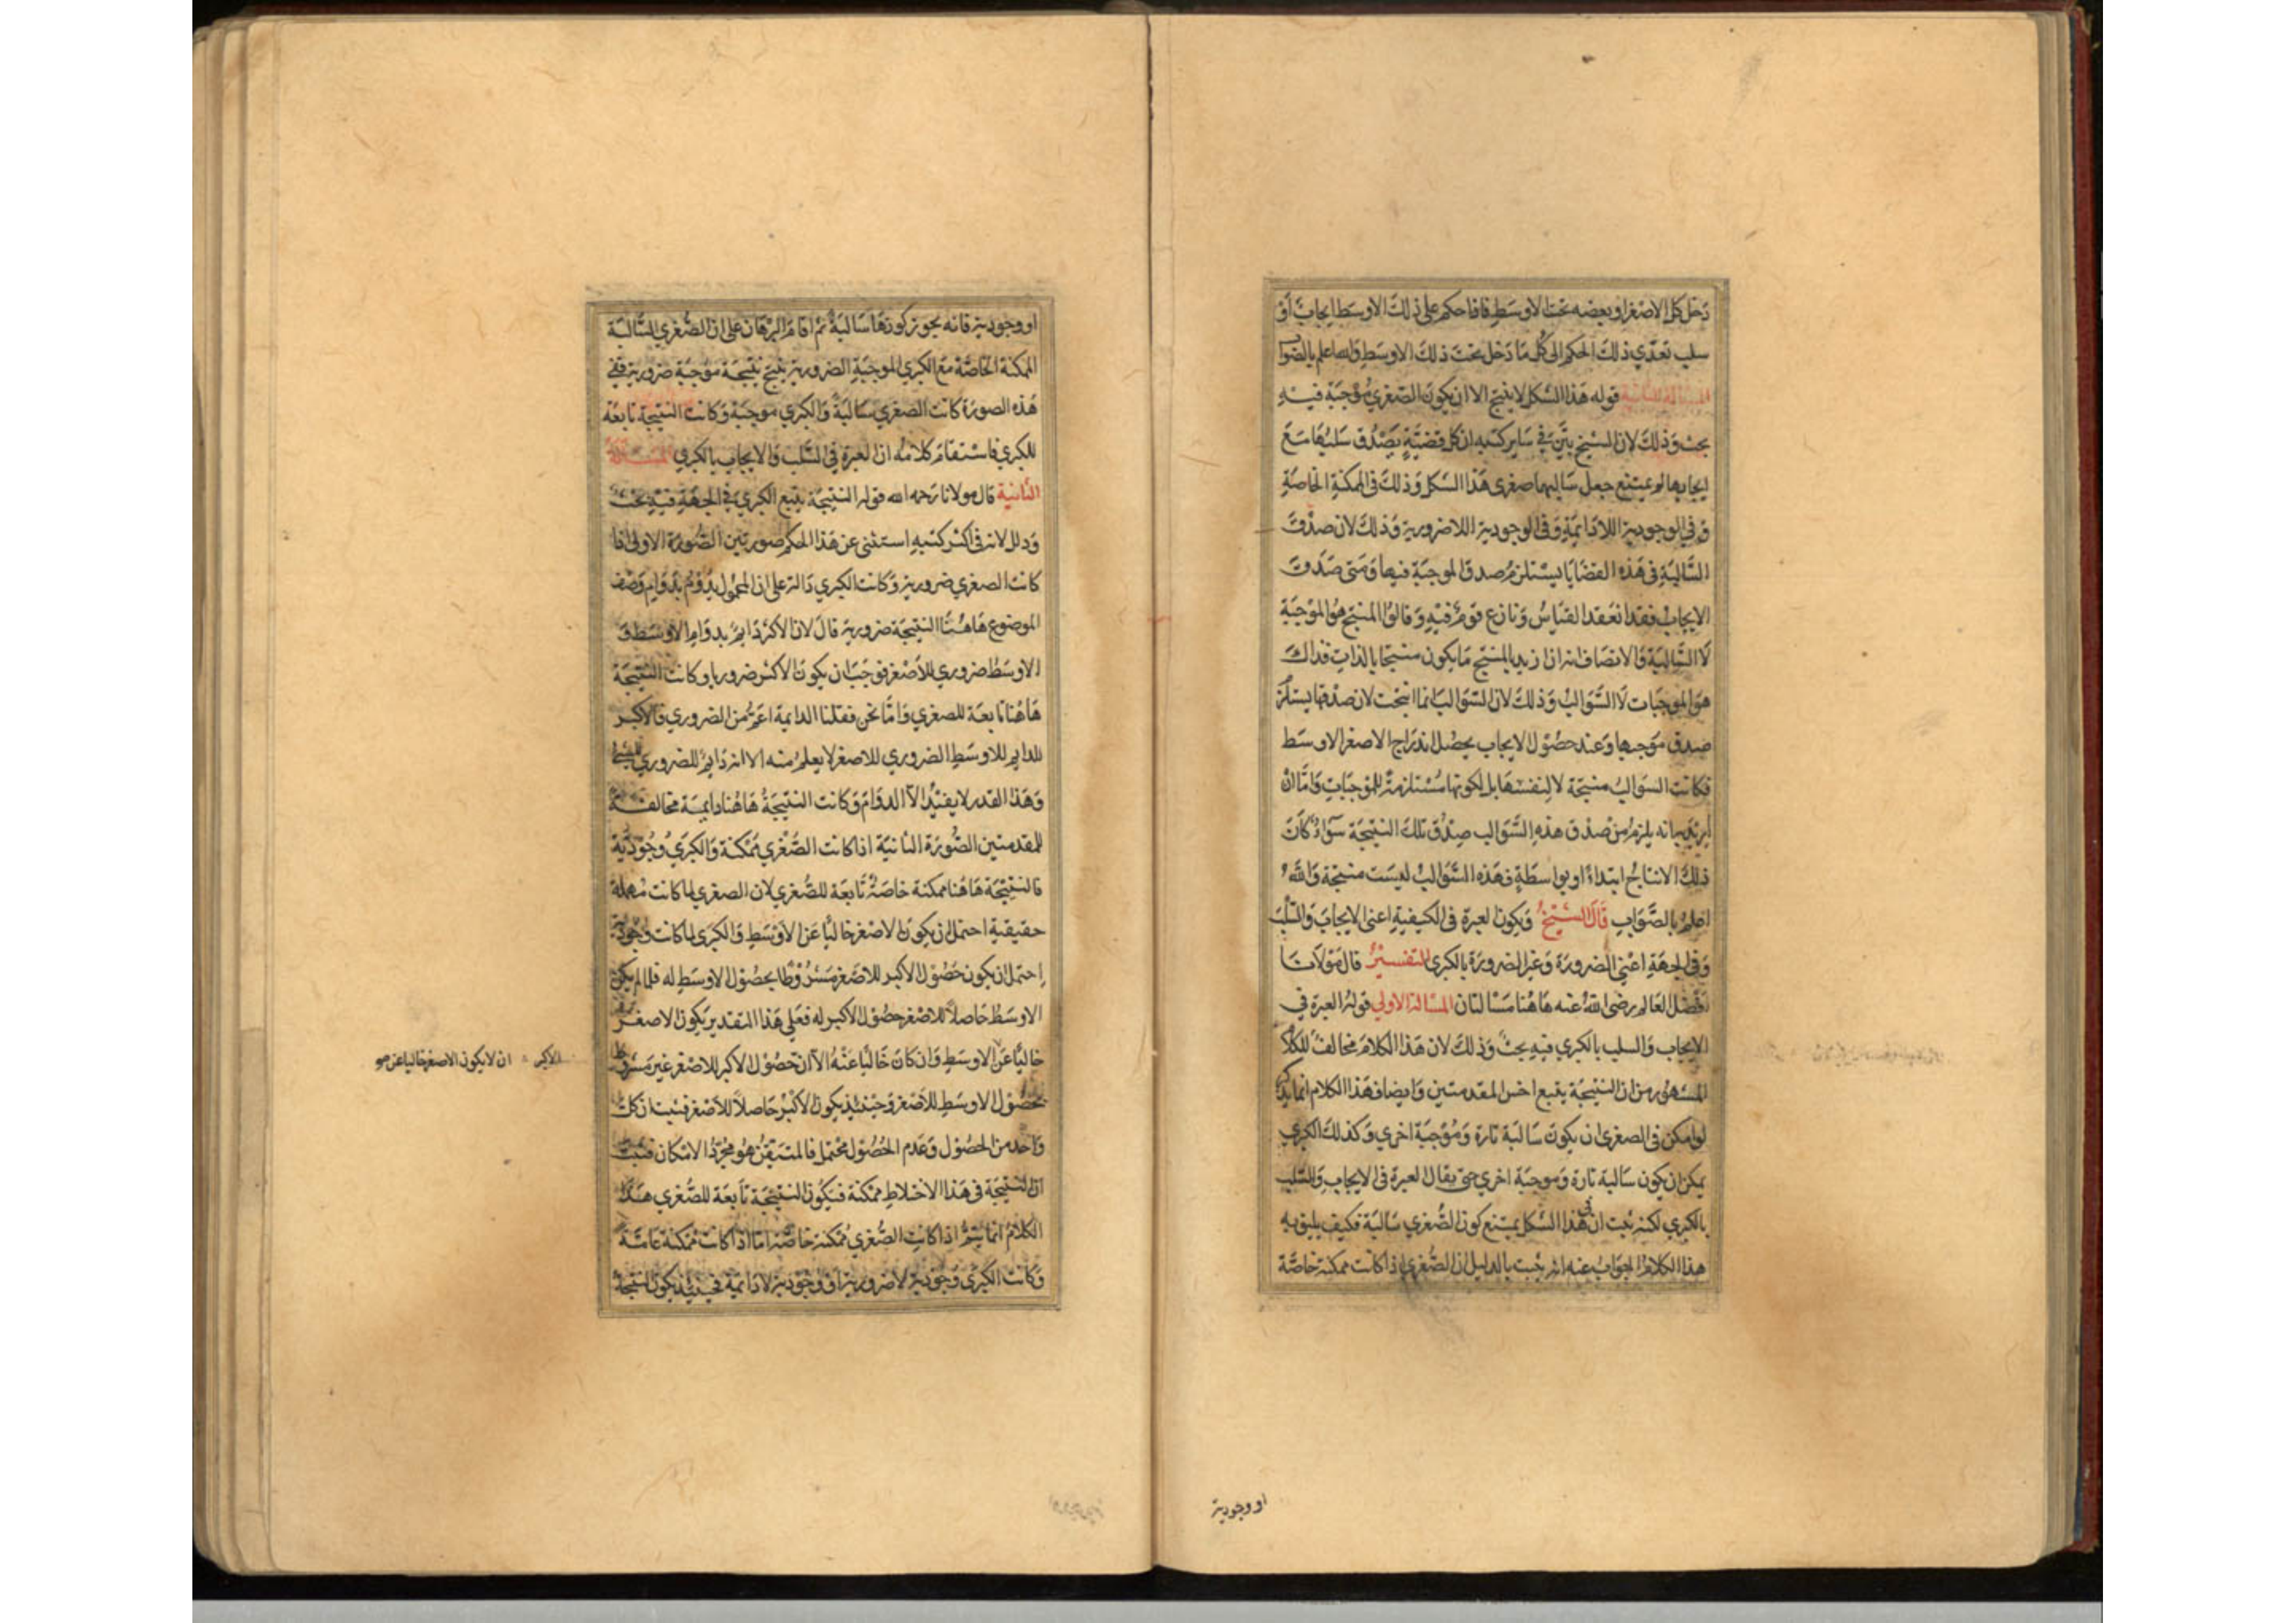 دخل كل الاصغر او بعضه تحت الاوسط فاذا حكم على ذلك الاوسط ايجاب او
سلب تعدي ذلك الحكم الى كل ما دخل تحت ذلك الاوسط والله اعلم بالصواب
المسالة الثانية قوله هذا الشكل لا ينتج الا ان يكون الصغري موجبة فيه
بحث وذلك لان الشيخ بين في ساير كتبه ان كل قضية يصدق سلبها مع
ايجابها لم يمتنع جعل سالبها صغرى هذا الشكل وذلك فى الممكنة الخاصة
وفي الوجودية اللادايمة وفى الوجودية اللاضرورية وذلك لان صدق
السالبة فى هذه القضايا يستلزم صدق الموجبة فيها ومتى صدق
الايجاب فقد انعقد القياس ونازع قوم فيه وقالوا المنتج هو الموجبة
لا السالبة والانصاف انه ان اريد بالمنتج ما يكون منتجا بالذات فذاك
هو الموجبات لا السوالب وذلك لان السوالب انما انتجت لان صدقها يستلزم
صدق موجبها وعند حصول الايجاب يحصل اندراج الاصغر الاوسط
فكانت السوالب منتجة لا لنفسها بل لكونها مستلزمة للموجبات واما ان
اريد به انه يلزم من صدق هذه السوالب صدق تلك النتيجة سواء كان
ذلك الانتاج ابتداء او بواسطة فهذه السوالب ليست منتجة والله
اعلم بالصواب قال الشيخ ويكون العبرة فى الكيفية اعنى الايجاب والسلب
وفى الجهة اعنى الضرورة وغير الضرورة بالكبرى التفسير قال مولانا
افضل العالم رضى الله عنه هاهنا مسالتان المسالة الاولي قوله العبرة في
الايجاب والسلب بالكبري فيه بحث وذلك لان هذا الكلام مخالف للكلام
المشهور من ان النتيجة يتبع اخس المقدمتين وايضا فهذا الكلام انما يذكر
لو امكن فى الصغرى ان يكون سالبة تارة وموجبة اخري وكذلك الكبري
يمكن ان يكون سالبة تارة وموجبة اخري حتى يقال العبرة فى الايجاب والسلب
بالكبري لكنه ثبت ان فى هذا الشكل يمتنع كون الصغري سالبة فكيف يليق به
هذا الكلام الجواب عنه انه يثبت بالدليل ان الصغري اذا كانت ممكنة خاصة
او وجودية
او وجودية فانه يجوز كونها سالبة ثم اقام البرهان على ان الصغري السالبة
الممكنة الخاصة مع الكبري الموجبة الضرورية ينتج نتيجة موجبة ضرورية ففي
هذه الصورة كانت الصغري سالبة والكبري موجبة وكانت النتيجة تابعة
للكبري فاستقام كلامه ان العبرة فى السلب والايجاب بالكبري المسالة
الثانية قال مولانا رحمه الله قوله النتيجة يتبع الكبري في الجهة فيه بحث
وذلك لانه فى اكثر كتبه استثنى عن هذا الحكم صورتين الصورة الاولى اذا
كانت الصغري ضرورية وكانت الكبري دالة على ان المحمول يدوم بدوام وصف
الموضوع هاهنا النتيجة ضرورية قال لان الاكبر دايم بدوام الاوسط و
الاوسط ضروري للاصغر فوجب ان يكون الاكبر ضروريا وكانت النتيجة
هاهنا تابعة للصغري واما نحن فقلنا الدايمة اعم من الضروري فالاكبر
الدايم للاوسط الضروري للاصغر لا يعلم منه الا انه دايم للضروري للشي
وهذا القدر لا يفيد الا الدوام وكانت النتيجة هاهنا دايمة مخالفة
للمقدمتين الصورة الثانية اذا كانت الصغري ممكنة والكبري وجودية
فالنتيجة هاهنا ممكنة خاصة تابعة للصغري لان الصغري لما كانت مهملة
حقيقية احتمل ان يكون الاصغر خاليا عن الاوسط والكبري لما كانت وجودية
احتمل ان يكون حصول الاكبر للاصغر مشروطا بحصول الاوسط له فلما لم يكن
الاوسط حاصلا للاصغر حصول الاكبر له فعلي هذا التقدير يكون الاصغر
خاليا عن الاوسط وان كان خاليا عنه الا ان حصول الاكبر للاصغر غير مشروط
بحصول الاوسط للاصغر وحينئذ يكون الاكبر حاصلا للاصغر فثبت ان كل
واحد من الحصول وعدم الحصول محتمل فالمتيقن هو مجرد الامكان فثبت
ان النتيجة فى هذا الاختلاط ممكنة فيكون النتيجة تابعة للصغري هذا
الكلام انما يتم اذا كانت الصغري ممكنة خاصة اما اذا كانت ممكنة عامة
وكانت الكبري وجودية لاضرورية او وجودية لادايمة فحينئذ يكون النتيجة
الاكبر ان لا يكون الاصغر خاليا عن